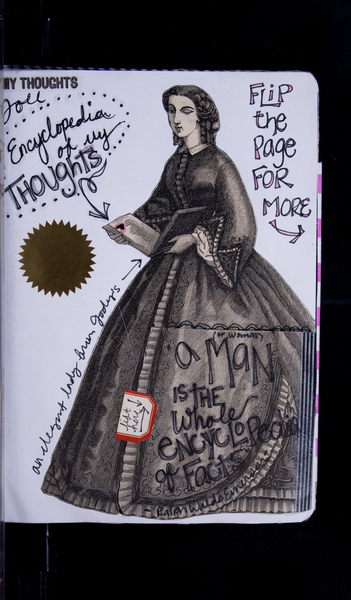 MY THOUGHTS
Encyclopedia
of my
THOUGHTS
FLIP
the
Page
FOR
MORE
an elegant lady from Godey's
lift
here
(or WOMAN)
"a MAN
IS THE
Whole
ENCYCLOPedia
of Facts"
- Ralph Waldo Emerson